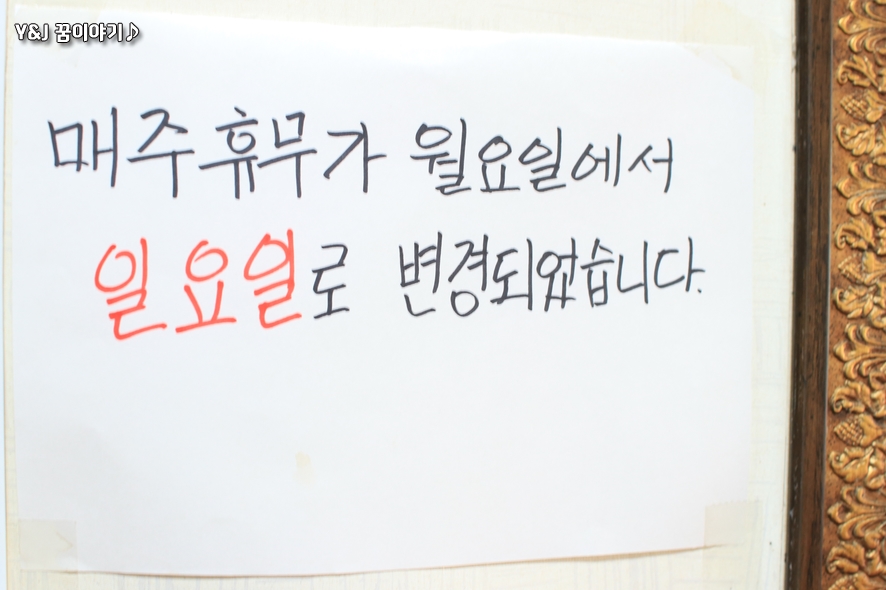 Y&J 꿈이야기♪
매주 휴무가 월요일에서
일요일로 변경되었습니다.